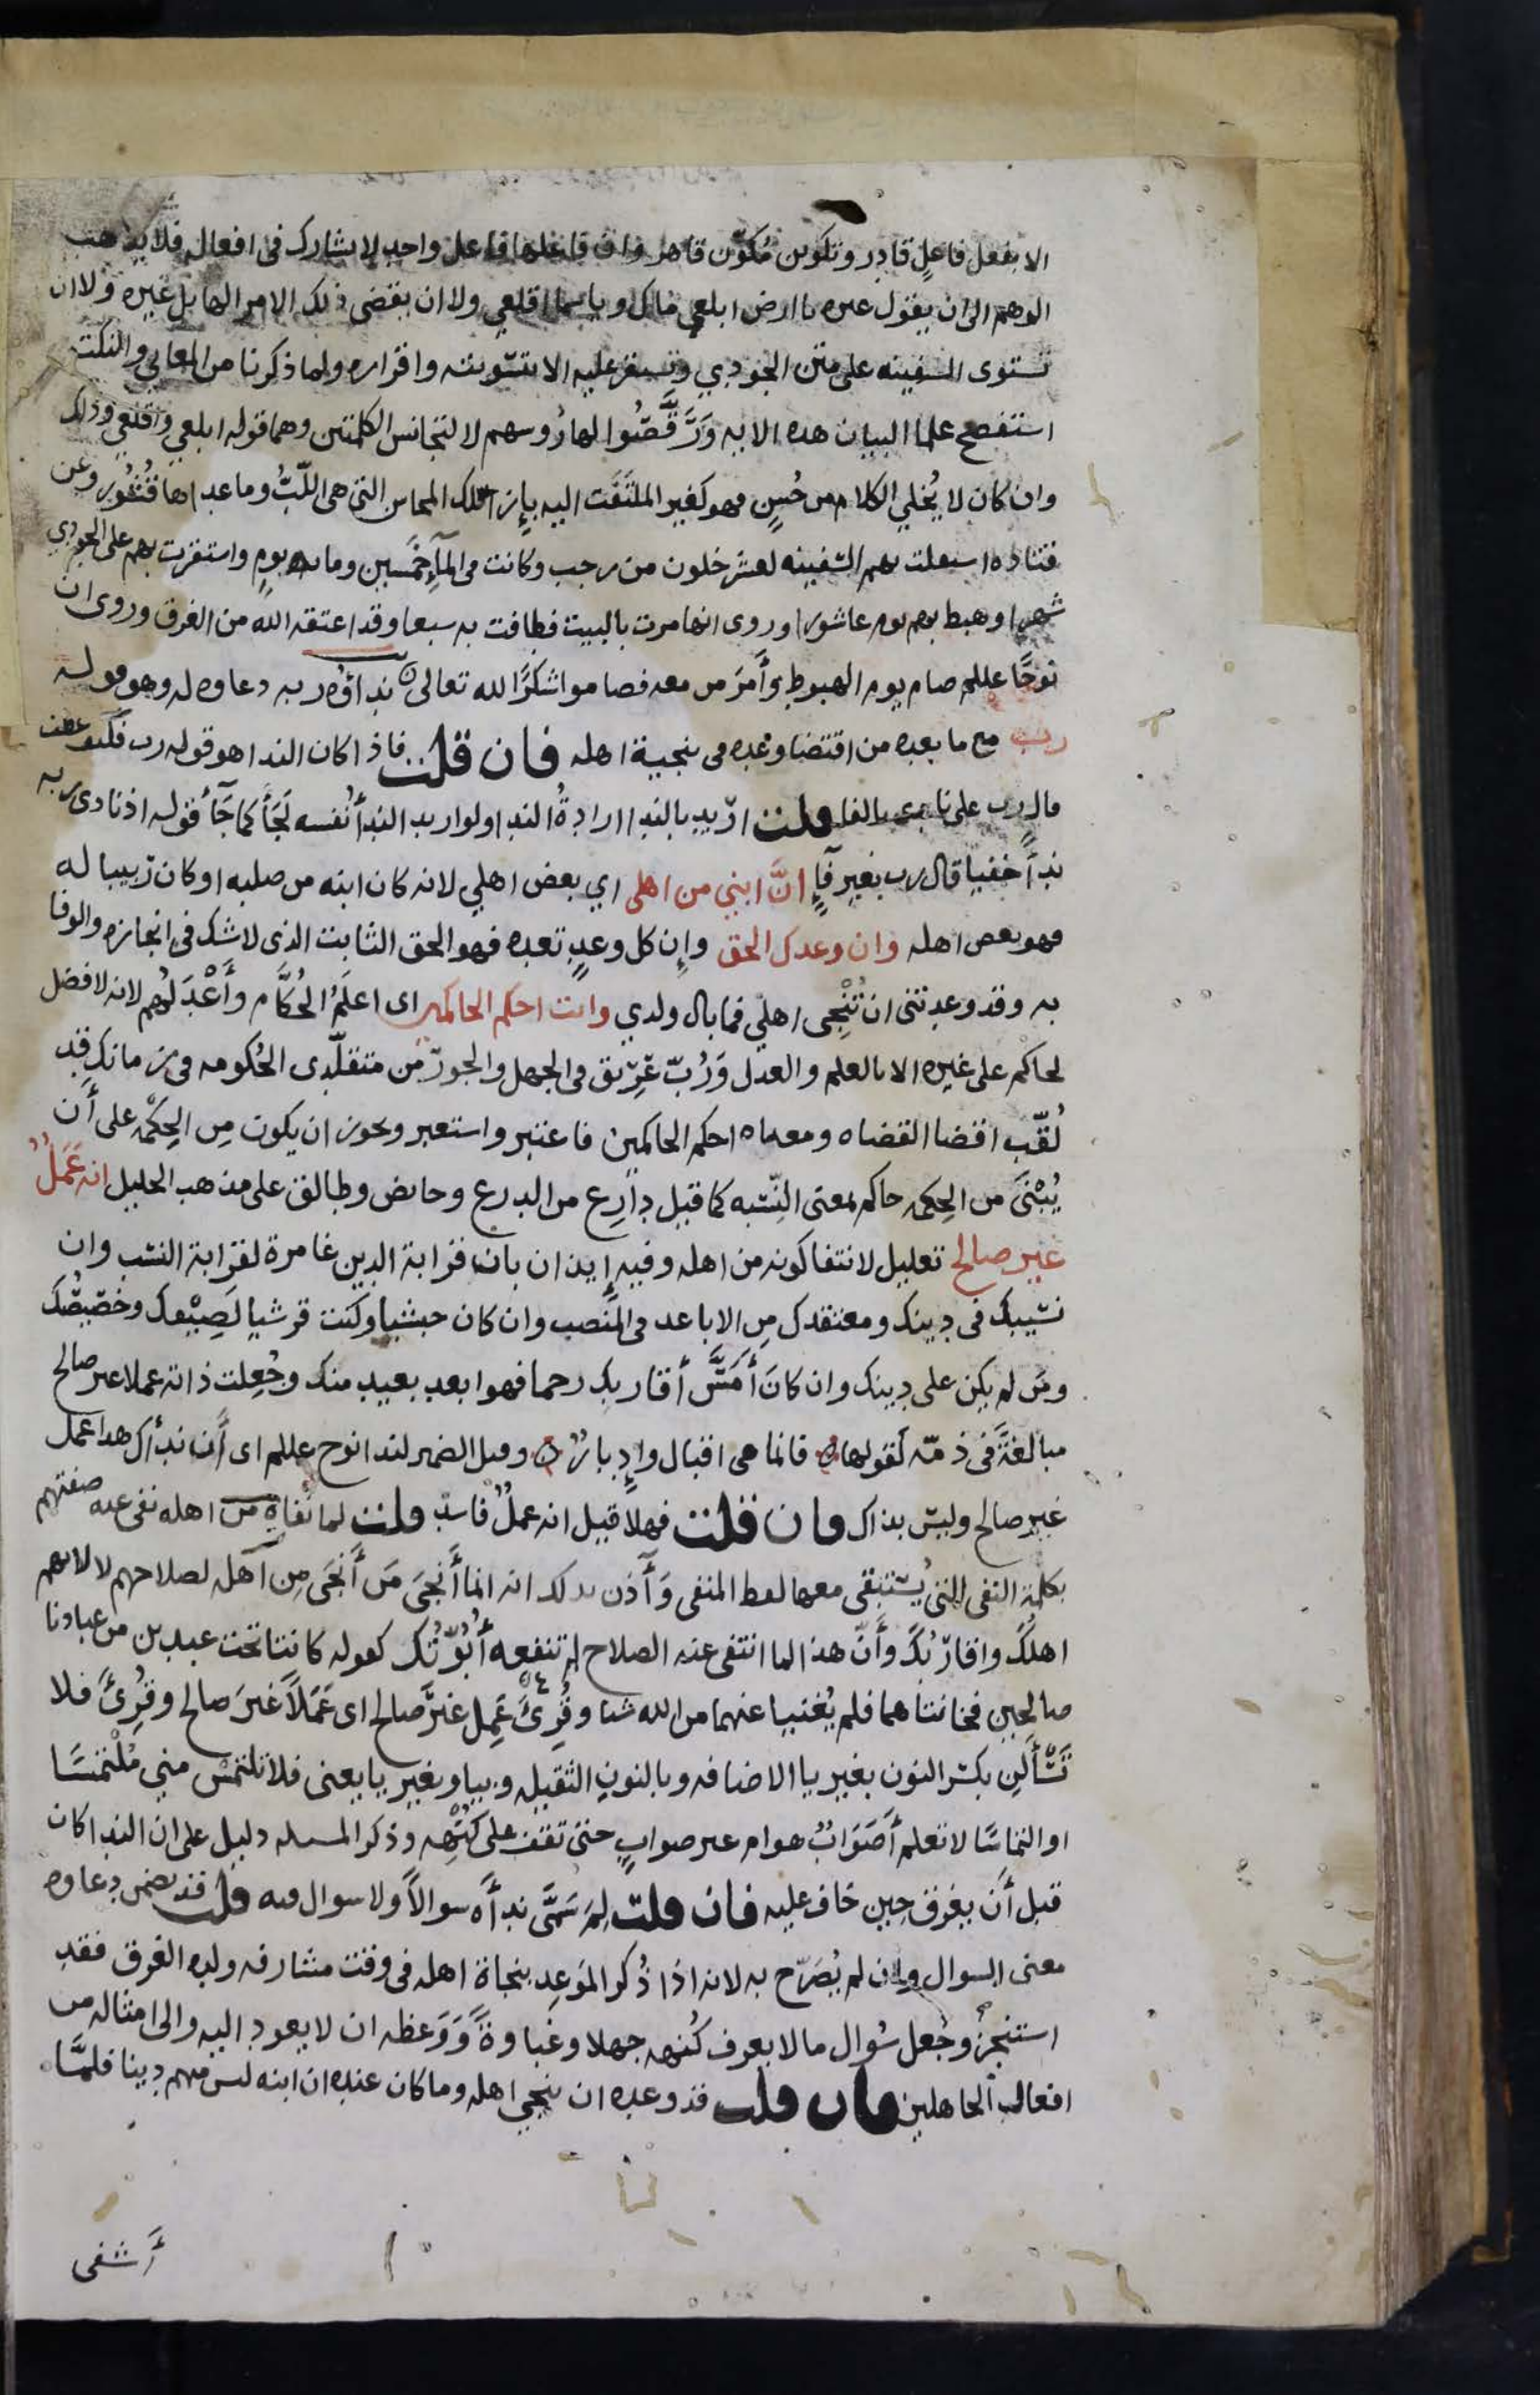 الا بفعل فاعل قادر وتكوين مُكَوّن قاهر وان فاعلها فاعل واحد لا يشارك فى افعاله فلا يذهب
الوهم الى ان يقول غيره يا ارض ابلعي ماك ويا سما اقلعي ولا ان يقضى ذلك الامر الهايل غيره ولا ان
تستوى السفينه على متن الجودي وتستقر عليه الا بتسويته واقراره ولما ذكرنا من المعاني والنكت
استفصح علما البيان هذه الايه وَرَقَّصُوا لها رُوسهم لا لتجانس الكلمتين وهما قوله ابلعي واقلعي وذلك
وان كان لا يُخلي الكلام من حُسنٍ فهو كغير الملتَفَت اليه بإزا تلك المحاسن التي هى اللُّبُّ وما عداها قُشُور وعن
قتاده استقلت بهم السفينه لعشر خلون من رجب وكانت فى المآءِ خمسين وما يه يومٍ واستقرت بهم على الجودي
شهرا وهبط بهم يوم عاشورا وروى انها مرت بالبيت فطافت به سبعا وقد اعتقه الله من الغرق وروى ان
نوحًا عللم صام يوم الهبوط وأَمَرَ من معه فصاموا شكرًا لله تعالى نداؤه ربه دعاوه له وهو قوله
رب مع ما بعده من اقتضا وعده فى تنجية اهله فان قلت فاذا كان الندا هو قوله رب فكيف عطف
قال رب على نادى بالفا قلت اُرّيد بالندا ارادةُ الندا ولو اريد الندأُ نفسه لَجَأَ كما جَآءَ قوله اذ نادى ربه
ندأً خفيا قال رب بغير فآءٍ انَّ ابني من اهلى اي بعض اهلي لانه كان ابنه من صلبه او كان رَبيبا له
فهو بعض اهله وان وعدك الحق وإن كل وعدٍ تعده فهو الحق الثابت الذى لا شك فى انجازه والوفا
به وقد وعدتنى ان تُنْجِى اهلي فما بال ولدي وانت احكم الحاكمين اى اعلَمُ الحُكَّام وأَعْدَلُهم لانه لا فضل
لحاكم على غيره الا بالعلم والعدل وَرُبّ غَرِيق فى الجهل والجور من متقلّدى الحُكومه فى زمانك قد
لُقّب اقضا القضاه ومعناه احكم الحاكمين فاعتبر واستعبر ويحوز ان يكون مِن الحِكْمَه على أَن
يُبْنَى من الحِكمه حاكم بمعنى النّسبه كما قيل دَارِع من الدرع وحايض وطالق على مذهب الخليل انه عَمَلٌ
غير صالح تعليل لانتفا كونه من اهله وفيه إيذان بان قرابة الدين غامرة لقرابة النسب وان
نسيبك فى دينك ومعتقدك مِن الاباعد فى المنصب وان كان حبشيا وكنت قرشيا لَصِيْقُك وخصّيصُك
ومَن لم يكن على دينك وان كانَ أَمَسَّ أقاربك رحما فهو ابعد بعيد منك وجُعِلت ذاته عملا غير صالح
مبالغةً فى ذمّه كقولها فانما هى اقبال وإِدبارُ وقيل الضمير لندا نوح عللم اى أَن نداك هذا عمل
غير صالح وليس بذاك فان قلت فهلا قيل انه عملٌ فاسد قلت لما نفاه من اهله نفى عنه صفتهم
بكلمة النفى التى يُستبقى معها لفظ المنفى وَآذن بذلك انه انما أَنْجَى مَن أَنْجَى مِن اهله لصلاحهم لا لانهم
اهلك واقارِبُك وأَنّ هذا لما انتفى عنه الصلاح لم تنفعه أُبُوّتُك كقوله كانتا تحت عبدين من عبادنا
صالحين فخانتاهما فلم يُغنيا عنهما من الله شيا وقُرِئَ عَمِل غيرَ صالح اى عَمَلاً غيرَ صالح وقُرِئَ فلا
تَسْأَلَنِ بكسر النون بغير يا الاضافه وبالنون الثقيله وبيا وبغير يا يعنى فلا تلتمس مني مُلْتَمَسًا
او التماسًا لا تعلم أَصَوَابٌ هو ام غير صوابٍ حتى تقف على كُنْهِه وذكر المسله دليل على ان الندا كان
قبل أَن يغرق حين خاف عليه فان قلت لِمَ سَمَّى ندأَه سوالاً ولا سوال فيه قلت قد تضمن دعاوه
معنى السوال وان لم يُصَرّح به لانه اذا ذُكر المَوعد بنجاة اهله فى وقت مشارفه ولده الغرق فقد
استنجزَ وجُعل سُوال ما لا يعرف كُنهه جهلا وغباوةً وَوَعظه ان لا يعود اليه والى امثاله من
افعال الجاهلين فان قلت قد وعده ان ينجي اهله وما كان عنده ان ابنه ليس منهم دينا فلمَّا
أَشفى